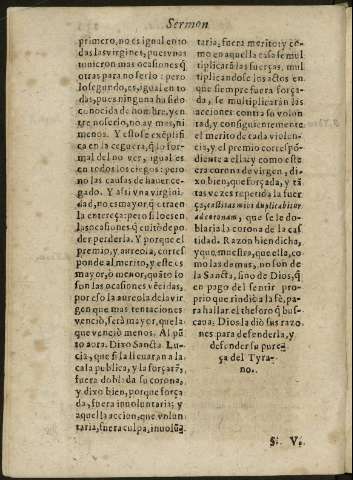 Sermon
primero, no es igual en to
das las virgines, pues vnas
tuuieron mas ocasiones q̃
otras para no serlo: pero
lo segundo, es igual en to
das, pues ninguna ha sido
conocida de hombre, y en
tre no serlo, no ay mas, ni
menos. Y esto se exẽplifi
ca en la ceguera, q̃ lo for-
mal del no ver, igual es
en todos los ciegos: pero
no las causas de hauer ce-
gado. Y assi vna virgini-
dad, no es mayor, q̃ otra en
la entereça: pero si lo es en
las ocasiones q̃ euitò de po
der perderla. Y porque el
premio, y aureola, corres
ponde al merito, y este es
mayor, ò menor, quãto lo
son las ocasiones vẽcidas,
por esso la aureola de la vir
gen que mas tentaciones
venciò, serà mayor, que la
que venciò menos. Al pũ
to aora. Dixo Sancta Lu-
cia, que si la lleuaran a la
cala publica, y la forçarã,
fuera doblada su corona,
y dixo bien, porque força
da, fuera inuoluntaria; y
aquella accion, que volun
taria, fuera culpa, inuolũ-
taria, fuera merito; y co-
mo en aquella casa se mul
tiplicarã las fuerças, mul
tiplicandose los actos en
que siempre fuera força-
da, se multiplicaràn las
acciones contra su volun
tad, y consiguientemente
el merito de cada violen-
cia, y el premio correspõ
diente a lla; y como este
era corona de virgen, di-
xo bien, que forçada, y tã
tas vezes repetida la fuer
ça, castitas mihi duplicabitur
ad coronam, que se le do-
blaria la corona de la cas
tidad. Razon bien dicha,
y que muestra, que ella, co
mo las demas, no son de
la Sancta, sino de Dios, q̃
en pago del sentir pro-
prio que rindiò a la fè, pa-
ra hallar el thesoro q̃ bus-
caua; Dios la diò sus razo
nes para defenderla, y
defender su pure-
ça del Tyra-
no.
§. V.